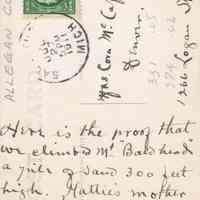 ALLEGAN CO
MICH
Mrs Cora Mc
Denver
1266 Logan St
Here is the proof that
we climbed Mt "Baldhead"
a pile of sand 300 feet
high. Hattie's mother